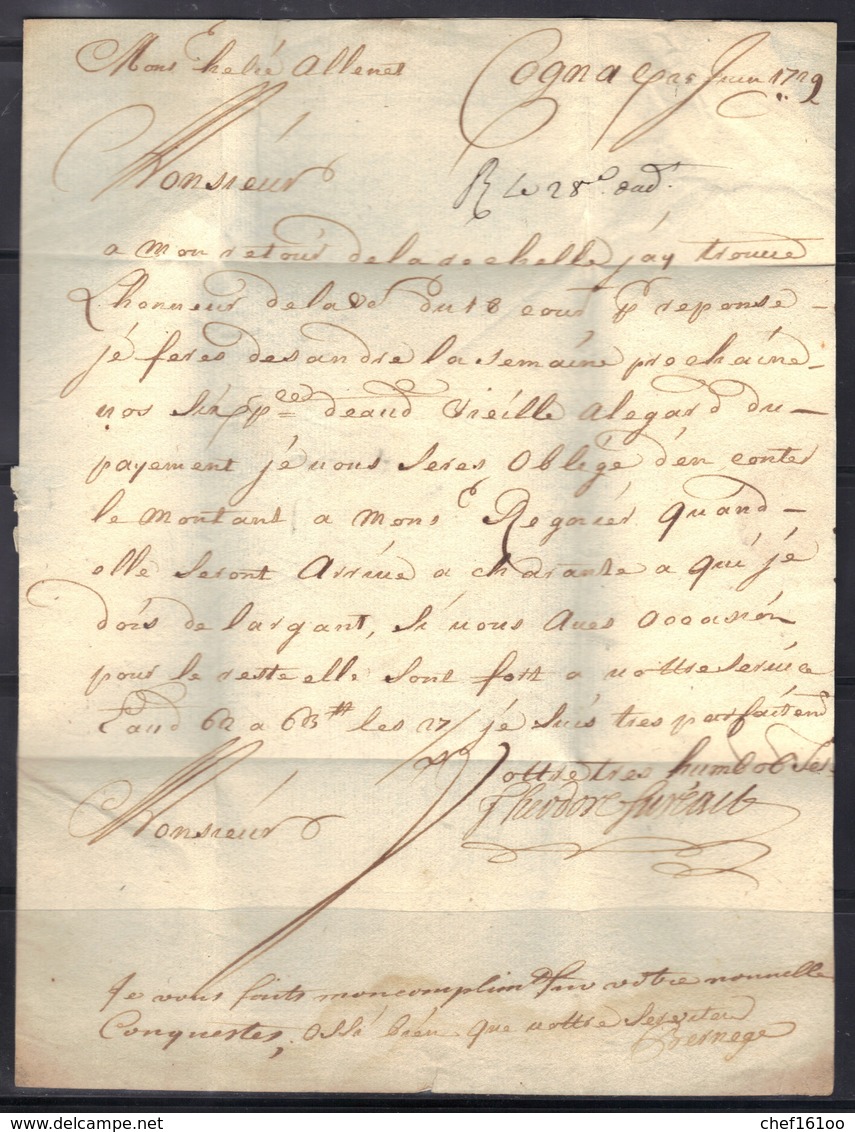 Mons.r helié allenet Cognac 25 Juin 1729
R le 28e. dud.
Monsieur
a mon retour de la rochelle j'ay trouvé
Lhonneur de la vé du 18 cour.t pr reponse
je feres desandre la semaine prochaine
nos six p.ces deaud Vieille alegard du
payement je vous seres obligé den conter
le montant a Mons.r Regnier quand
elle seront Arrive a charante a qui je
dois de largant, si vous Aves occasion
pour le reste elle sont fort a vottre service
Laud 62 a 63tt les 27/ je suis tres parfaitemt
Vottre tres humb ob Ser
Monsieur
Theodore
je vous faits mon complimt sur vôtre nouvelle
Conquestes, ossi bien que vottre serviteur
chef16100
www.delcampe.net